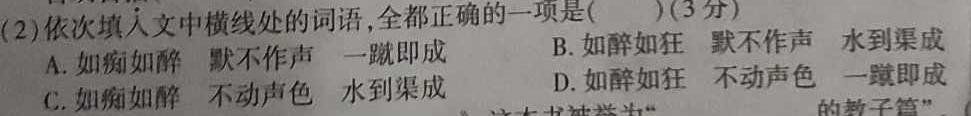 (2)依次填入文中横线处的词语,全都正确的一项是(  )(3分)
A. 如痴如醉 默不作声 一蹴即成 B. 如醉如狂 默不作声 水到渠成
C. 如痴如醉 不动声色 水到渠成 D. 如醉如狂 不动声色 一蹴即成
这本书被誉为“ 的教子篇”